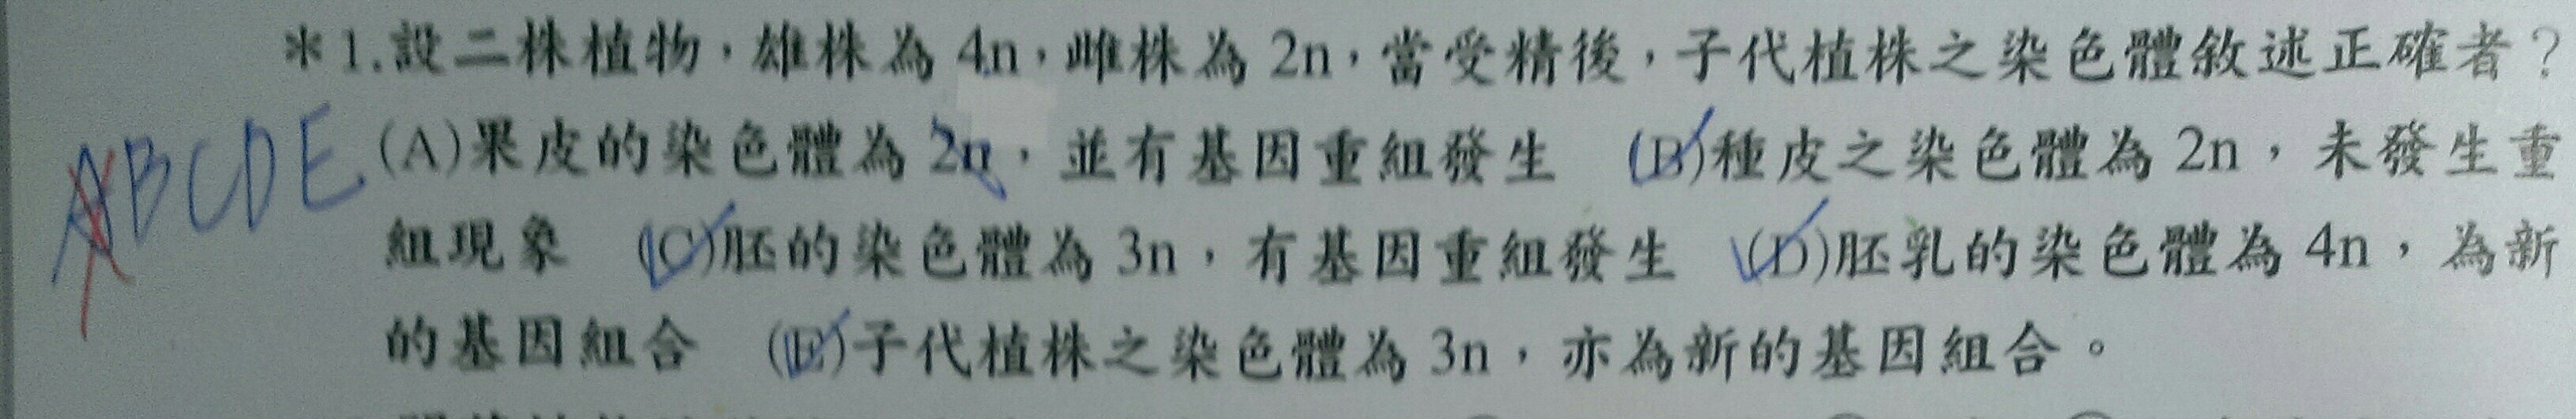 ＊1.設二株植物，雄株為 4n，雌株為 2n，當受精後，子代植株之染色體敘述正確者？
ABCDE (A)果皮的染色體為 2n，並有基因重組發生 (B)種皮之染色體為 2n，未發生重
組現象 (C)胚的染色體為 3n，有基因重組發生 (D)胚乳的染色體為 4n，為新
的基因組合 (E)子代植株之染色體為 3n，亦為新的基因組合。